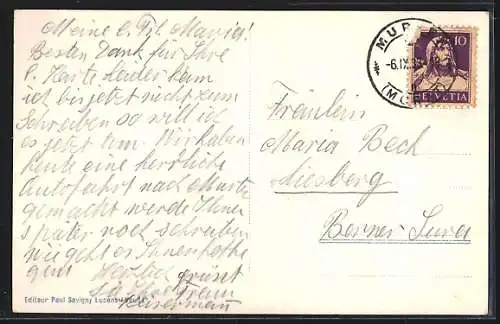 Meine l. Frl. Maria!
Besten Dank für Ihre
P. Karte Leider kam
ich bis jetzt nicht zum
Schreiben so will ich
es jetzt tun. Wir haben
heute eine herrliche
Autofahrt nach
gemacht werde Ihnen
später noch schreiben
wie geht es Ihnen hoffe
gut Herzlich grüsst
Fräulein
Maria Bech
Liesberg
Berner Jura
MUR
-6.IX.
10
HELVETIA
Editeur Paul Savigny